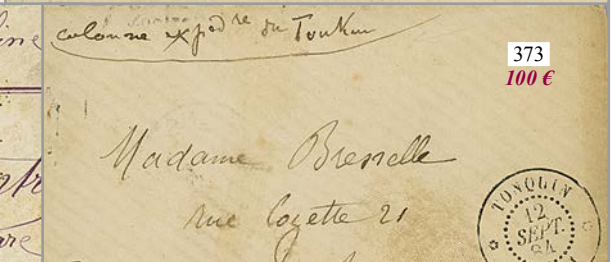 colonne expedre du Tonkin
373
100 €
Madame Bresselle
rue
21
TONQUIN
12
SEPT.
84